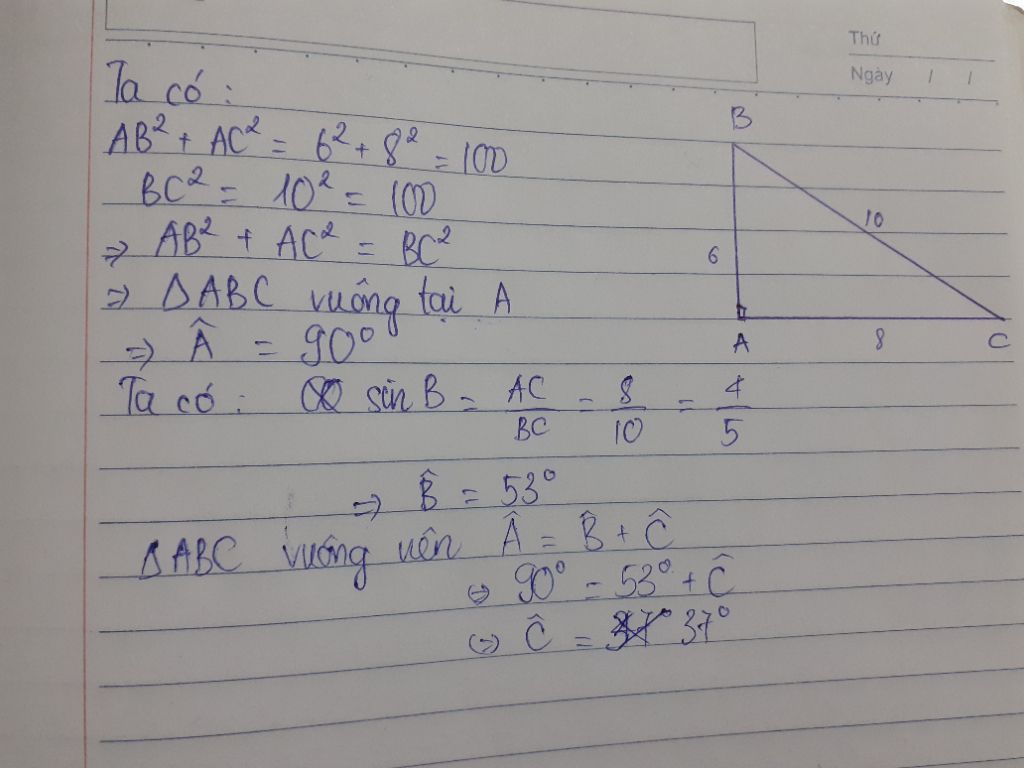 Thứ
Ngày / /
Ta có :
AB² + AC² = 6² + 8² = 100
BC² = 10² = 100
=> AB² + AC² = BC²
=> ΔABC vuông tại A
=> Â = 90°
Ta có : sin B = AC/BC = 8/10 = 4/5
=> B̂ = 53°
ΔABC vuông nên Â = B̂ + Ĉ
<=> 90° = 53° + Ĉ
<=> Ĉ = 37°
B
10
6
A
8
C